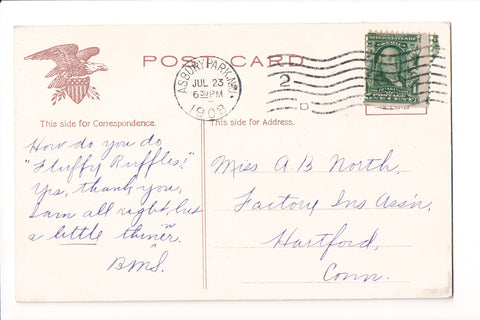 POST CARD
ASBURY PARK, N.J.
JUL 23
630PM
1908
2
D
This side for Correspondence.
This side for Address.
How do you do
"Fluffy Ruffles!"
Yes, thank you,
I am all right, but
a little thinner.
B.M.S.
Miss A.B. North,
Factory Ins Ass'n,
Hartford,
Conn.